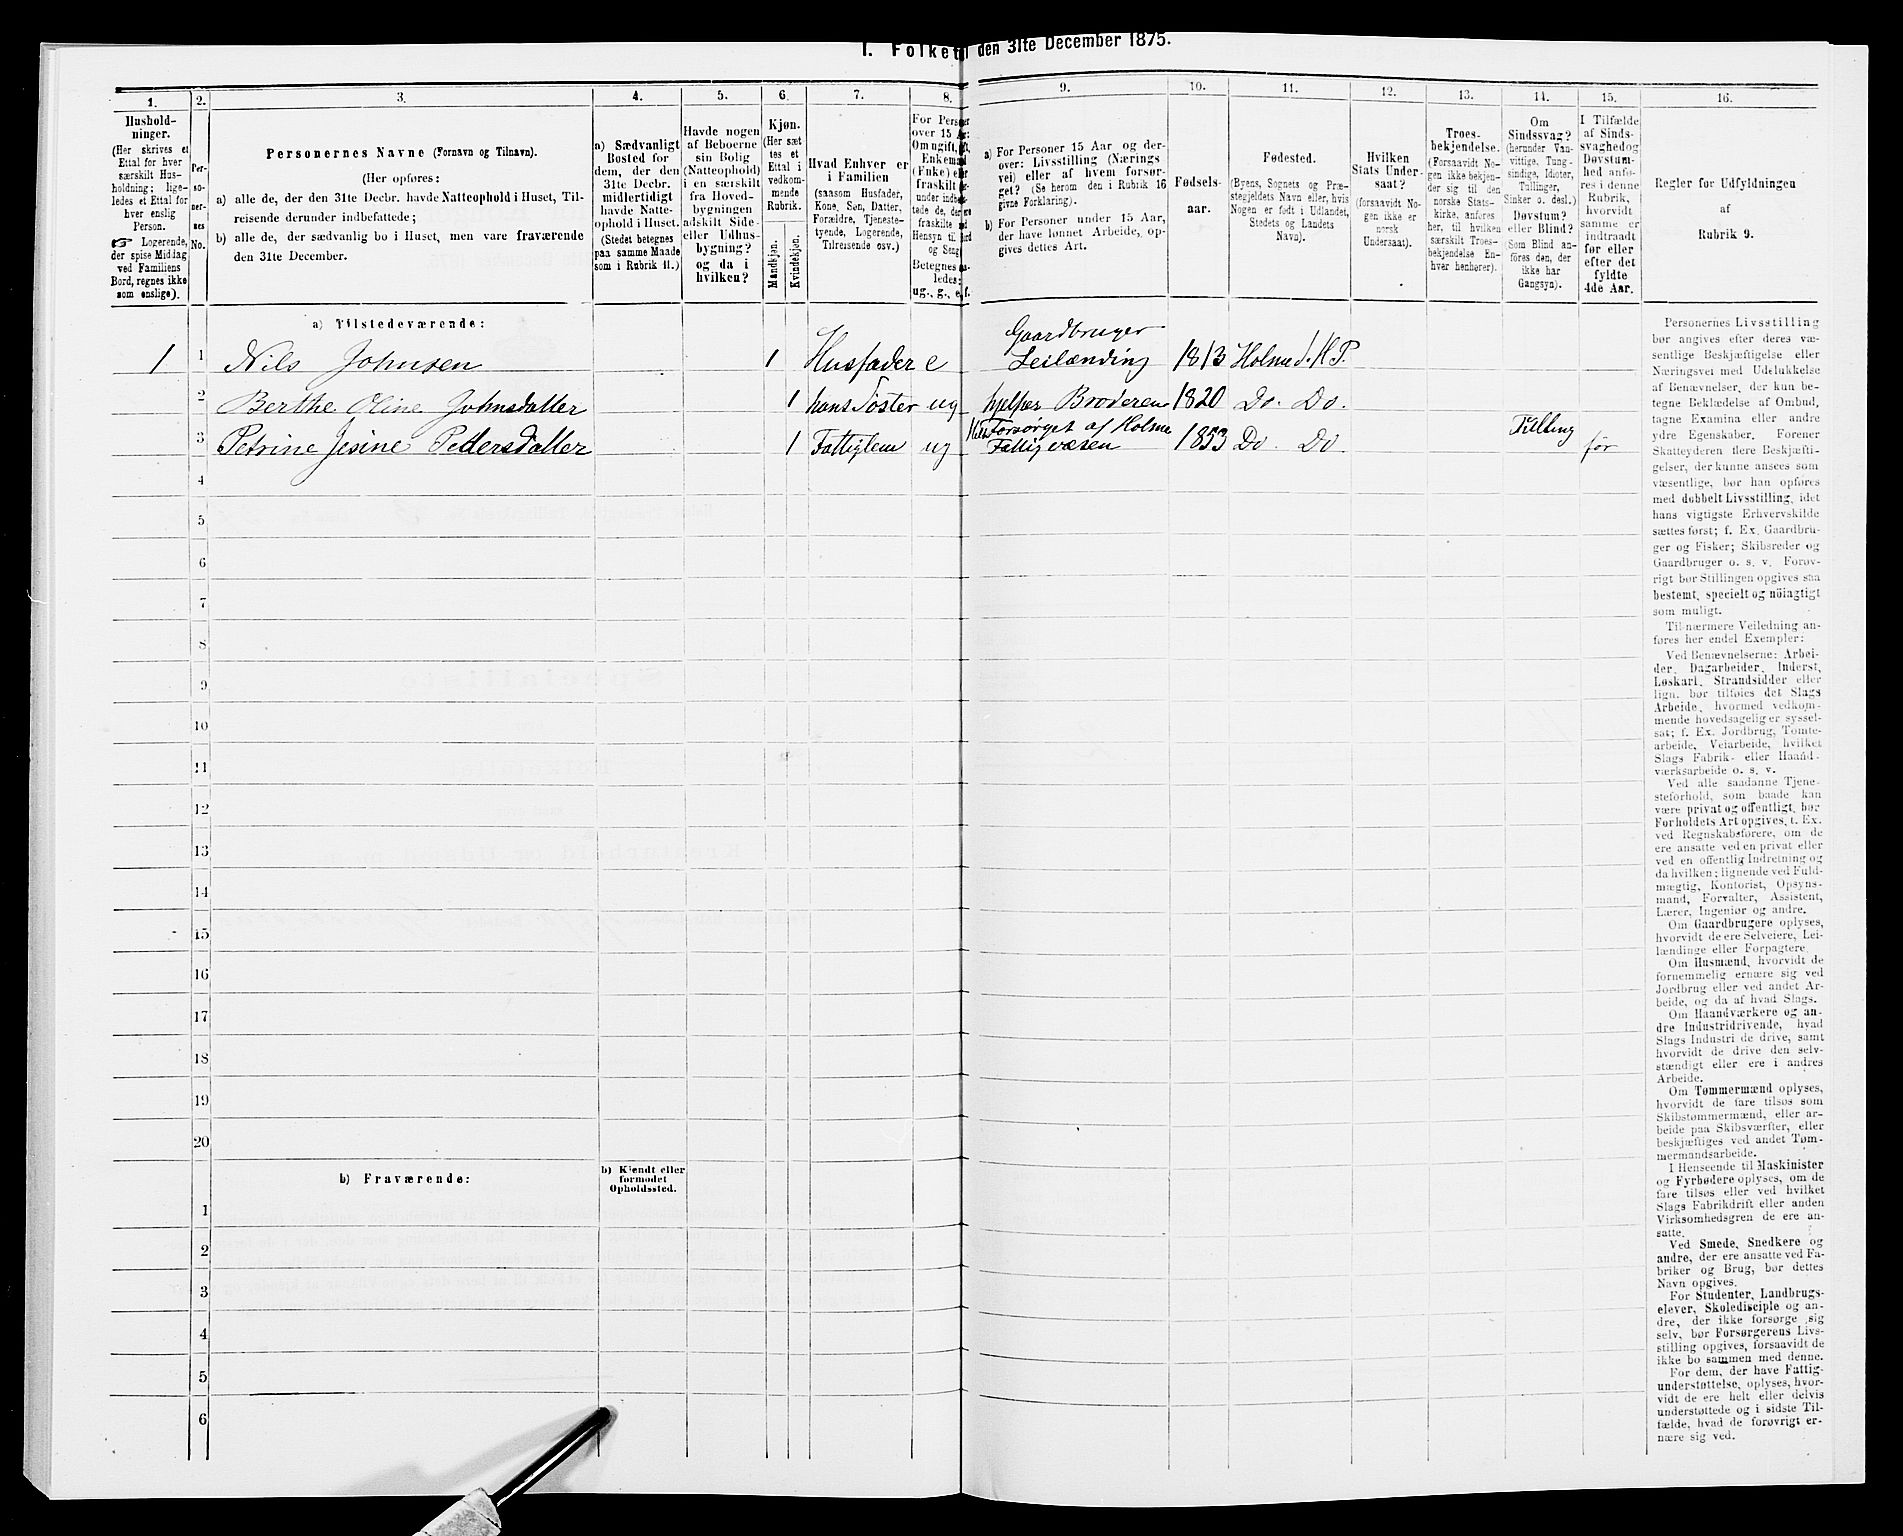 I. Folket den 31te December 1875.
1. 2. 3. 4. 5. 6. 7. 8. 9. 10. 11. 12. 13. 14. 15. 16.
Hushold-
ninger.
(Her skrives et
Ettal for hver
særskilt Hus-
holdning; lige-
ledes et Ettal for
hver enslig
Person.
☞ Logerende,
der spise Middag
ved Familiens
Bord, regnes ikke
som enslige).
Per-
so-
ner-
nes
No.
Personernes Navne (Fornavn og Tilnavn).
(Her opføres:
a) alle de, der den 31te Decbr. havde Natteophold i Huset, Til-
reisende derunder indbefattede;
b) alle de, der sædvanlig bo i Huset, men vare fraværende
den 31te December.
a) Sædvanligt
Bosted for
dem, der den
31te Decbr.
midlertidigt
havde Natte-
ophold i Huset.
(Stedet betegnes
paa samme Maade
som i Rubrik 11.)
Havde nogen
af Beboerne
sin Bolig
(Natteophold)
i en særskilt
fra Hoved-
bygningen
adskilt Side-
eller Udhus-
bygning?
og da i
hvilken?
Kjøn.
(Her sæt
tes et
Ettal i
vedkom-
mende
Rubrik.
Mandkjøn.
Kvindekjøn.
Hvad Enhver er
i Familien
(saasom Husfader,
Kone, Søn, Datter,
Forældre, Tjeneste-
tyende, Logerende,
Tilreisende osv.)
For Perso
over 15 Aar:
Om ugift,
Enkemand
(Enke) eller
fraskilt
under indbefat-
tede de, der
fraskilte
Hensyn til Bord
og Seng
Betegnes saa-
ledes:
ug., g., e, f.
a) For Personer 15 Aar og der-
over: Livsstilling (Nærings
vei) eller af hvem forsør-
get? (Se herom den i Rubrik 16
givne Forklaring).
b) For Personer under 15 Aar,
der have lønnet Arbeide, op-
gives dettes Art.
Fødsels-
aar.
Fødested.
(Byens, Sognets og Præ-
stegjeldets Navn eller, hvis
Nogen er født i Udlandet,
Stedets og Landets
Navn).
Hvilken
Stats Under-
saat?
(forsaavidt No-
gen ikke er
norsk
Undersaat).
Troes-
bekjendelse.
(Forsaavidt No-
gen ikke bekjen-
der sig til den
norske Stats-
kirke, anføres
her, til hvilken
særskilt Troes-
bekjendelse En-
hver henhører).
Om
Sindssvag?
(herunder Van-
vittige, Tung-
sindige, Idioter,
Tullinger,
Sinker o. desl.)
Døvstum?
eller Blind?
(Som Blind an-
føres den, der
ikke har
Gangsyn).
I Tilfælde
af Sinds-
svaghedog
Døvstum-
hed anfø-
res i denne
Rubrik,
hvorvidt
samme er
indtraadt
før eller
efter det
fyldte
4de Aar.
Regler for Udfyldningen
af
Rubrik 9.
a) Tilstedeværende:
1 1 Nils Johnsen 1 Husfader e Gaardbruger
Leilænding 1813 Holme S. H P.
2 Berthe Oline Johnsdatter 1 hans Søster ug hjelper Broderen 1820 Do. Do.
3 Petrine Jesine Pedersdatter 1 Fattiglem ug Forsørget af Holme
Fattigvæsen 1853 Do. Do. Tulling før
4
5
6
7
8
9
10
11
12
13
14
15
16
17
18
19
20
b) Fraværende:
b) Kjendt eller
formodet
Opholdssted.
1
2
3
4
5
6
Personernes Livsstilling
bør angives efter deres væ-
sentlige Beskjæftigelse eller
Næringsvei med Udelukkelse
af Benævnelser, der kun be-
tegne Beklædelse af Ombud,
tagne Examina eller andre
ydre Egenskaber. Forener
Skatteyderen flere Beskjæfti-
gelser, der kunne ansees som
væsentlige, bør han opføres
med dobbelt Livsstilling, idet
hans vigtigste Erhvervskilde
sættes først; f. Ex. Gaardbru-
ger og Fisker; Skibsreder og
Gaardbruger o. s. v. Forøv-
rigt bør Stillingen opgives saa
bestemt, specielt og nöiagtigt
som muligt.
Til nærmere Veiledning an-
føres her endel Exempler:
Ved Benævnelserne: Arbei-
der, Dagarbeider, Inderst,
Løskarl, Strandsidder eller
lign. bør tilføies det Slags
Arbeide, hvormed vedkom-
mende hovedsagelig er syssel-
sat; f. Ex. Jordbrug, Tomte-
arbeide, Veiarbeide, hvilket
Slags Fabrik- eller Haand-
værksarbeide o. s. v.
Ved alle saadanne Tjene-
steforhold, som baade kan
være privat og offentligt, bør
Forholdets Art opgives, f. Ex.
ved Regnskabsførere, om de
ere ansatte ved en privat eller
ved en offentlig Indretning og
da hvilken; lignende ved Fuld-
mægtig, Kontorist, Opsyns-
mand, Forvalter, Assistent,
Lærer, Ingeniør og andre.
Om Gaardbrugere oplyses,
hvorvidt de ere Selveiere, Lei-
lændinge eller Forpagtere.
Om Husmænd, hvorvidt de
fornemmelig ernære sig ved
Jordbrug eller ved andet Ar-
beide, og da af hvad Slags.
Om Haandværkere og an-
dre Industridrivende, hvad
Slags Industri de drive, samt
hvorvidt de drive den selv-
stændigt eller ere i andres
Arbeide.
Om Tømmermænd oplyses,
hvorvidt de fare tilsøs som
Skibstømmermænd, eller ar-
beide paa Skibsværfter, eller
beskjæftiges ved andet Tøm-
mermandsarbeide.
I Henseende til Maskinister
og Fyrbødere oplyses, om de
fare tilsøs eller ved hvilket
Slags Fabrikdrift eller anden
Virksomhedsgren de ere an-
satte.
Ved Smede, Snedkere og
andre, der ere ansatte ved Fa-
briker og Brug, bør dettes
Navn opgives.
For Studenter, Landbrugs-
elever, Skoledisciple og an-
dre, der ikke forsørge sig
selv, bør Forsørgerens Livs-
stilling opgives, forsaavidt de
ikke bo sammen med denne.
For dem, der have Fattig-
understøttelse, oplyses, hvor-
vidt de ere helt eller delvis
understøttede og i sidste Til-
fælde, hvad de forøvrigt er-
nære sig ved.